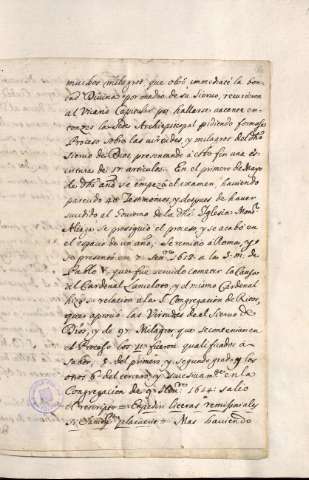 muchos milagros que obró immediate la bon-
dad Divina por medio de su Siervo, recurrieron
al Vicario Capitular por hallarse vacante en-
tonces la Sede Archiepiscopal pidiendo formasse
Proceso sobre las virtudes, y milagros del dho
Siervo de Dios, presentando a este fin una es-
critura de 17 articulos. En el primero de Mayo
de dho año se empezó el examen, haviendo
parecido 40 Testimonios, y despues de haver
sucedido el Govierno de la dha Iglesia
se prosiguió el proceso, y se acabó en
el espacio de un año, Se remitió a Roma, y
se presentó en 7 1612 a la S. m. de
Paulo V, que fue servido cometer la Causa
al Cardenal Lanceloto, y el mismo Cardenal
hizo su relacion a la S. Congregacion de Ritos,
que aprovó las Virtudes de el Siervo de
Dios, y de 97 Milagros que se contenian en
el Proceso los 11 fueron qualificados a
saber, 5 del primero, y segundo grado, y los
otros 6 del tercero, y en la
Congregacion de 9 1614 salio
el rescripto = Expediri literas remissoriales
si Sanctissimo placuerit = Mas haviendo